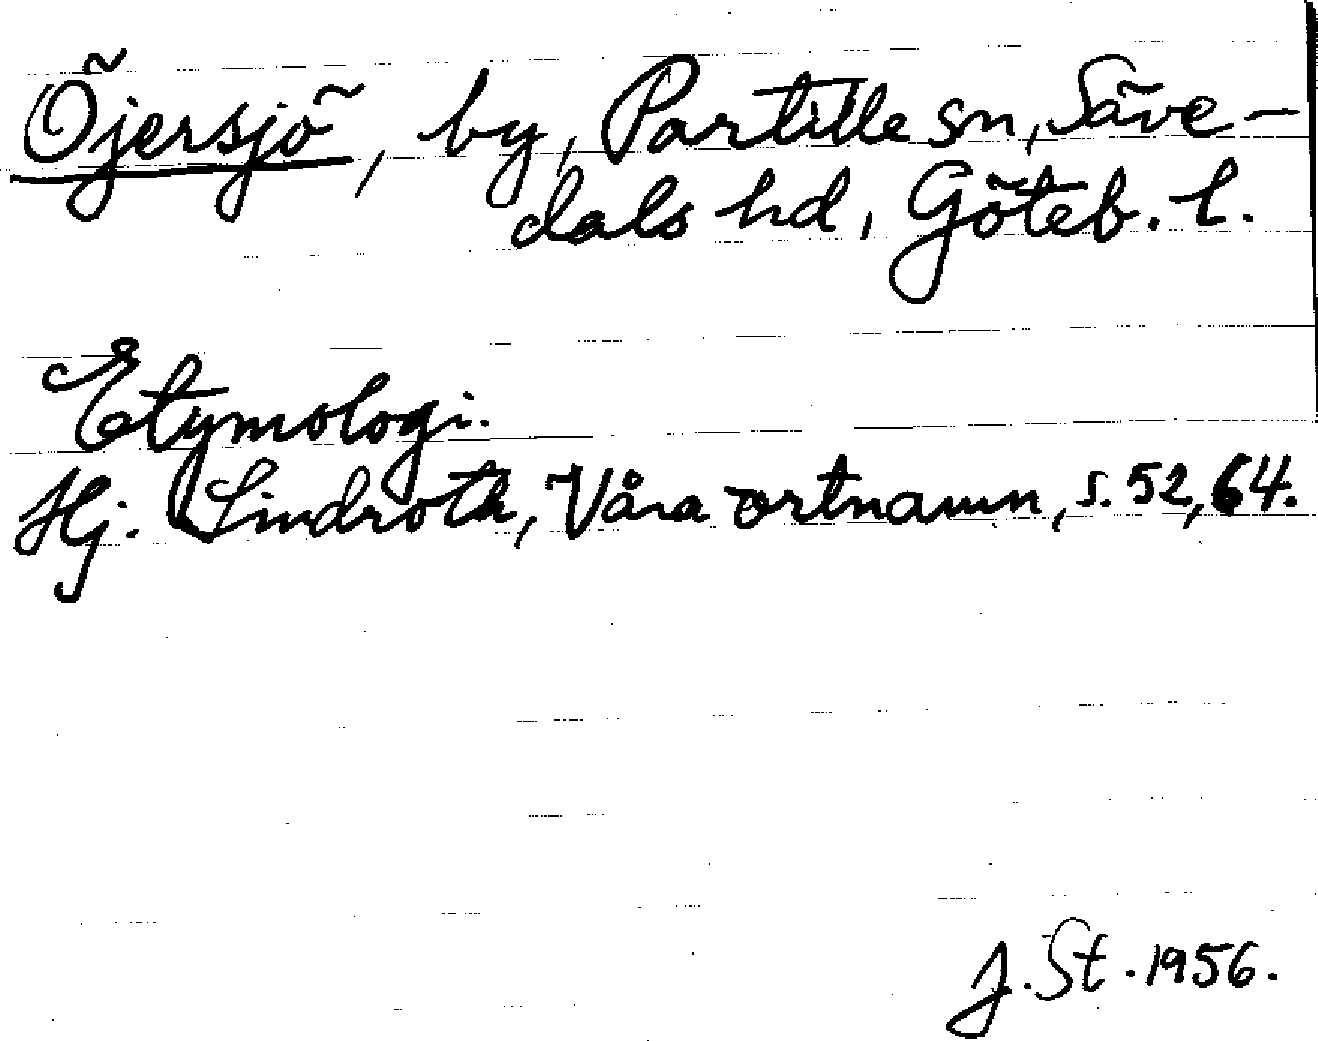 Öjersjö, by, Partille sn, Säve-
dals hd, Göteb. l.
Etymologi.
Hj. Lindroth, Våra ortnamn, s. 52, 64.
J. St. 1956.